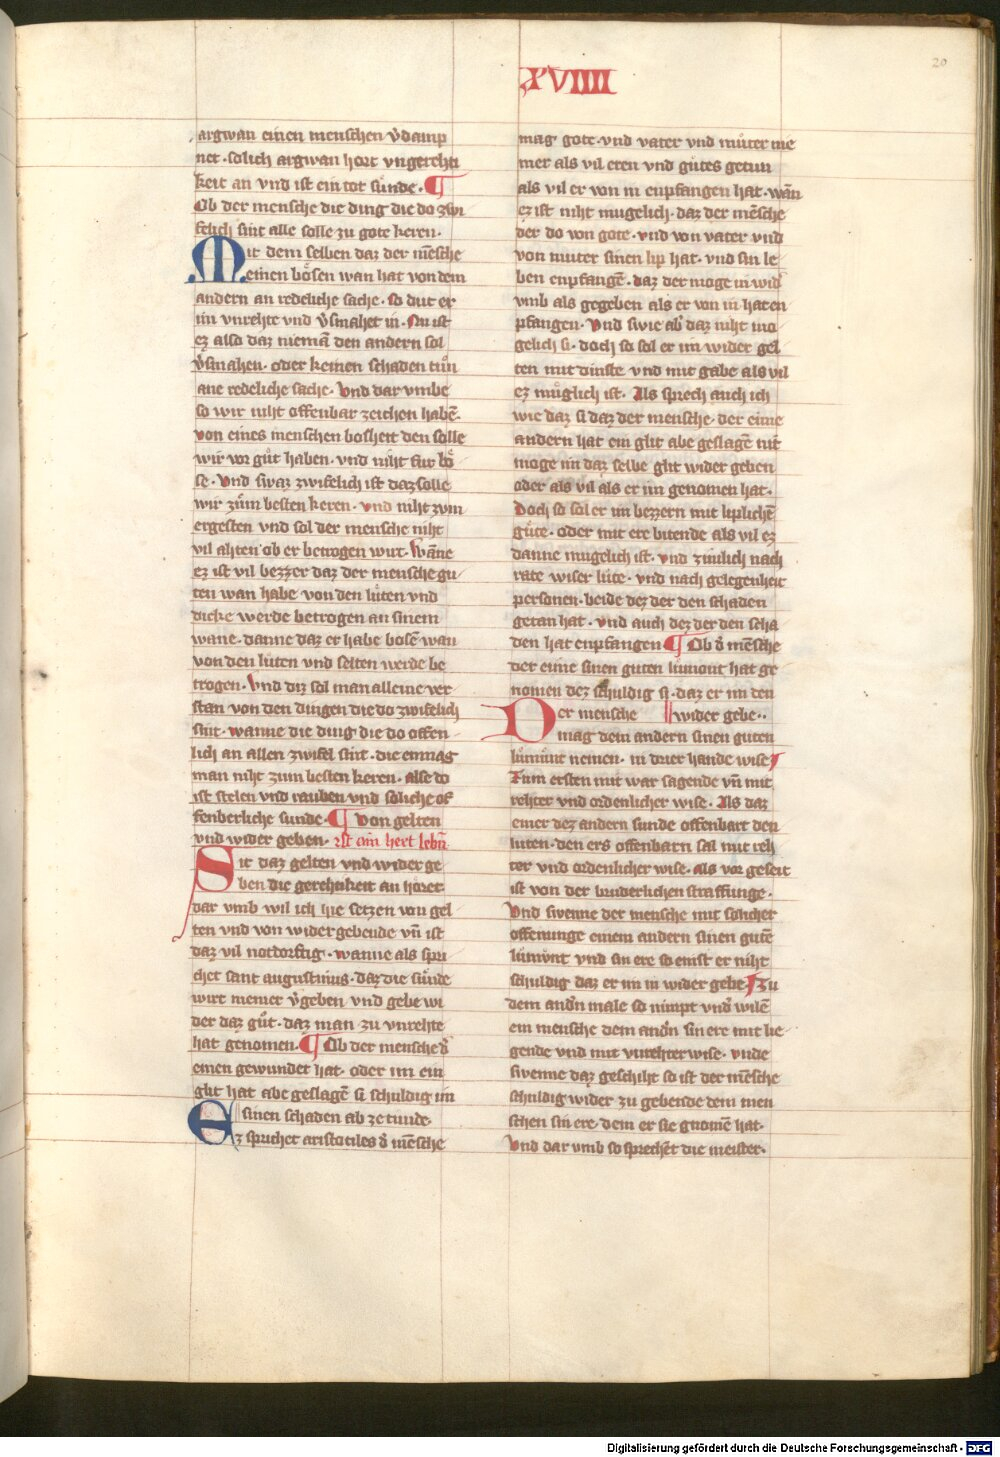 XVIIII
20
argwan einen menschen v̉damp
net · solich argwan hort vngerehti
keit an vnd ist ein tot sünde · ¶
Ob der mensche die ding die do zwi
felich sint alle solle zu gote keren ·
Mit dem selben daz der mēsche
einen bösen wan hat von dem
andern an redeliche sache · so dut er
im vnrehte vnd v̉smahet in · Nu ist
ez also daz niemā den andern sol
v̉smahen · oder keinen schaden tůn
ane redeliche sache · Vnd dar vmbe
so wir niht offenbar zeichen habē ·
von eines menschen bosheit den solle
wir vor gůt haben · vnd niht fur bö
se · Vnd swaz zwifelich ist daz solle
wir zům besten keren · vnd niht zvm
ergesten vnd sol der mensche niht
vil ahten ob er betrogen wirt · Wāne
ez ist vil bezzer daz der mensche gu
ten wan habe von den lůten vnd
dicke werde betrogen an sinem
wane · danne daz er habe bosē wan
von den luten vnd selten werde be
trogen · Vnd diz sol man alleine ver
stan von den dingen die do zwifelich
sint · wanne die ding die do offen
lich an allen zwifel sint · die enmag
man niht zum besten keren · alse do
ist stelen vnd rauben vnd soliche of
fenberliche sunde · ¶ Von gelten
vnd wider geben · ist ain hert lebn̄
Sit daz gelten vnd wider ge
ben die gerehtikeit an höret
dar vmb wil ich hie setzen von gel
ten vnd von widergebende vn̄ ist
daz vil notdorftig · wanne als spri
chet sant augustinus · daz die sünde
wirt niemer v̉geben vnd gebe wi
der daz gůt · daz man zu vnrehte
hat genomen · ¶ Ob der mensche d̉
einen gewundet hat · oder im ein
glit hat abe geslagē si schuldig im
sinen schaden ab ze tunde ·
Ez sprichet aristotiles d̉ mēsche
mag gote · vnd vater vnd můter nie
mer als vil eren vnd gůtes getun
als vil er von in enpfangen hat · wān
ez ist niht mugelich · daz der mēsche
der do von gote · vnd von vater vnd
von muter sinen lip hat · vnd sin le
ben enpfangē · daz der moge in wid̉
vmb als gegeben als er von in hat en
pfangen · Vnd swie ab̉ daz niht mo
gelich si · doch so sol er im wider gel
ten mit dinste vnd mit gabe als vil
ez můglich ist · Als sprech auch ich
wie daz si daz der mensche · der eime
andern hat ein glit abe geslagē nit
moge im daz selbe glit wider geben
oder als vil als er im genomen hat ·
Doch so sol er im bezzern mit liplichē
gůte · oder mit ere bitende als vil ez
danne mugelich ist · vnd zimlich nach
rate wiser lüte · vnd nach gelegenheit
personen · beide dez der den schaden
getan hat · vnd auch dez der den scha
den hat enpfangen ¶ Ob d̉ mēsche
der eime sinen guten lümont hat ge
nomen dez schuldig si · daz er im den
Der mensche wider gebe ··
mag dem andern sinen guten
lümůnt nemen · in drier hande wise
Zum ersten mit war sagende vn̄ mit
rehter vnd ordenlicher wise · Als daz
einer dez andern sunde offenbart den
luten · den ers offenbarn sal mit reh
ter vnd ordenlicher wise · als vor geseit
ist von der bruderlichen straffunge ·
Vnd swenne der mensche mit solicher
offenunge einem andern sinen gutē
lümůnt vnd sin ere so enist er niht
schuldig daz er im in wider gebe · Zu
dem and̉n male so nimpt vnd̉ wilē
ein mensche dem and̉n sin ere mit lie
gende vnd mit vnrehter wise · vnde
swenne daz geschiht so ist der mēsche
schuldig wider zu gebende dem men
schen sin ere · dem er sie gnomē hat ·
Vnd dar vmb so sprechēt die meister ·
Digitalisierung gefördert durch die Deutsche Forschungsgemeinschaft - DFG